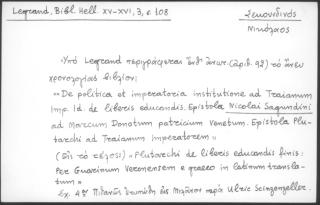 Legrand, Bibl. Hell. XV-XVI, 3, σ. 108
Σεκουνδινός
Νικόλαος
Ὑπό Legrand περιγράφεται ἐνθ' ἀνωτ. (ἀριθ. 92) τό ἄνευ
χρονολογίας βιβλίον:
"De politica et imperatoria institutione ad Traianum
Imp. Id. de liberis educandis. Epistola Nicolai Sagundini
ad Marcum Donatum patricium Venetum. Epistola Plu-
tarchi ad Traianum Imperatorem"
(Εἰς τό τέλος:) "Plutarchi de liberis educandis finis:
Per Guarinum Veronensem e graeco in latinum transla-
tum"
Εἰς 4ον Πιθανῶς ἐτυπώθη εἰς Μιλᾶνον παρά Ulric Scinzenzeller.